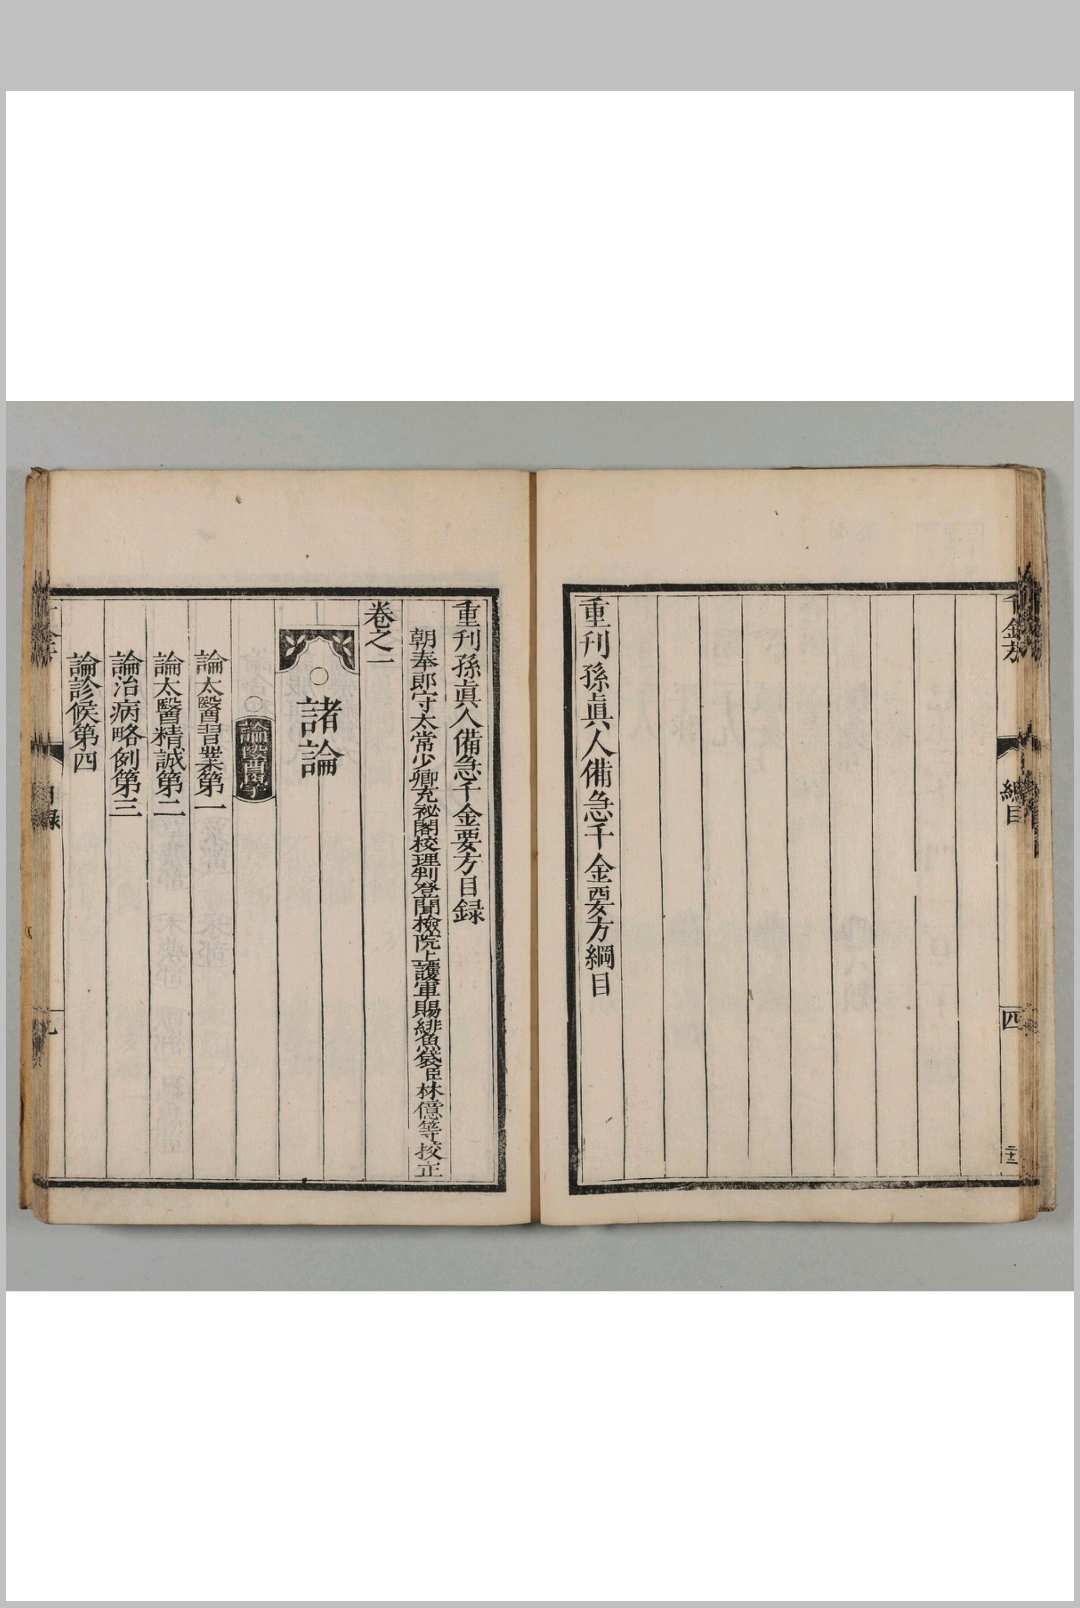 重刊孫眞人備急千金要方綱目
千金方
綱目
四
二十二
重刊孫眞人備急千金要方目録
朝奉郎守太常少卿充祕閣校理判登聞檢院上護軍賜緋魚袋臣林億等校正
卷之一
○諸論
○
論太醫習業第一
論太醫精誠第二
論治病略例第三
論診候第四
目録
九